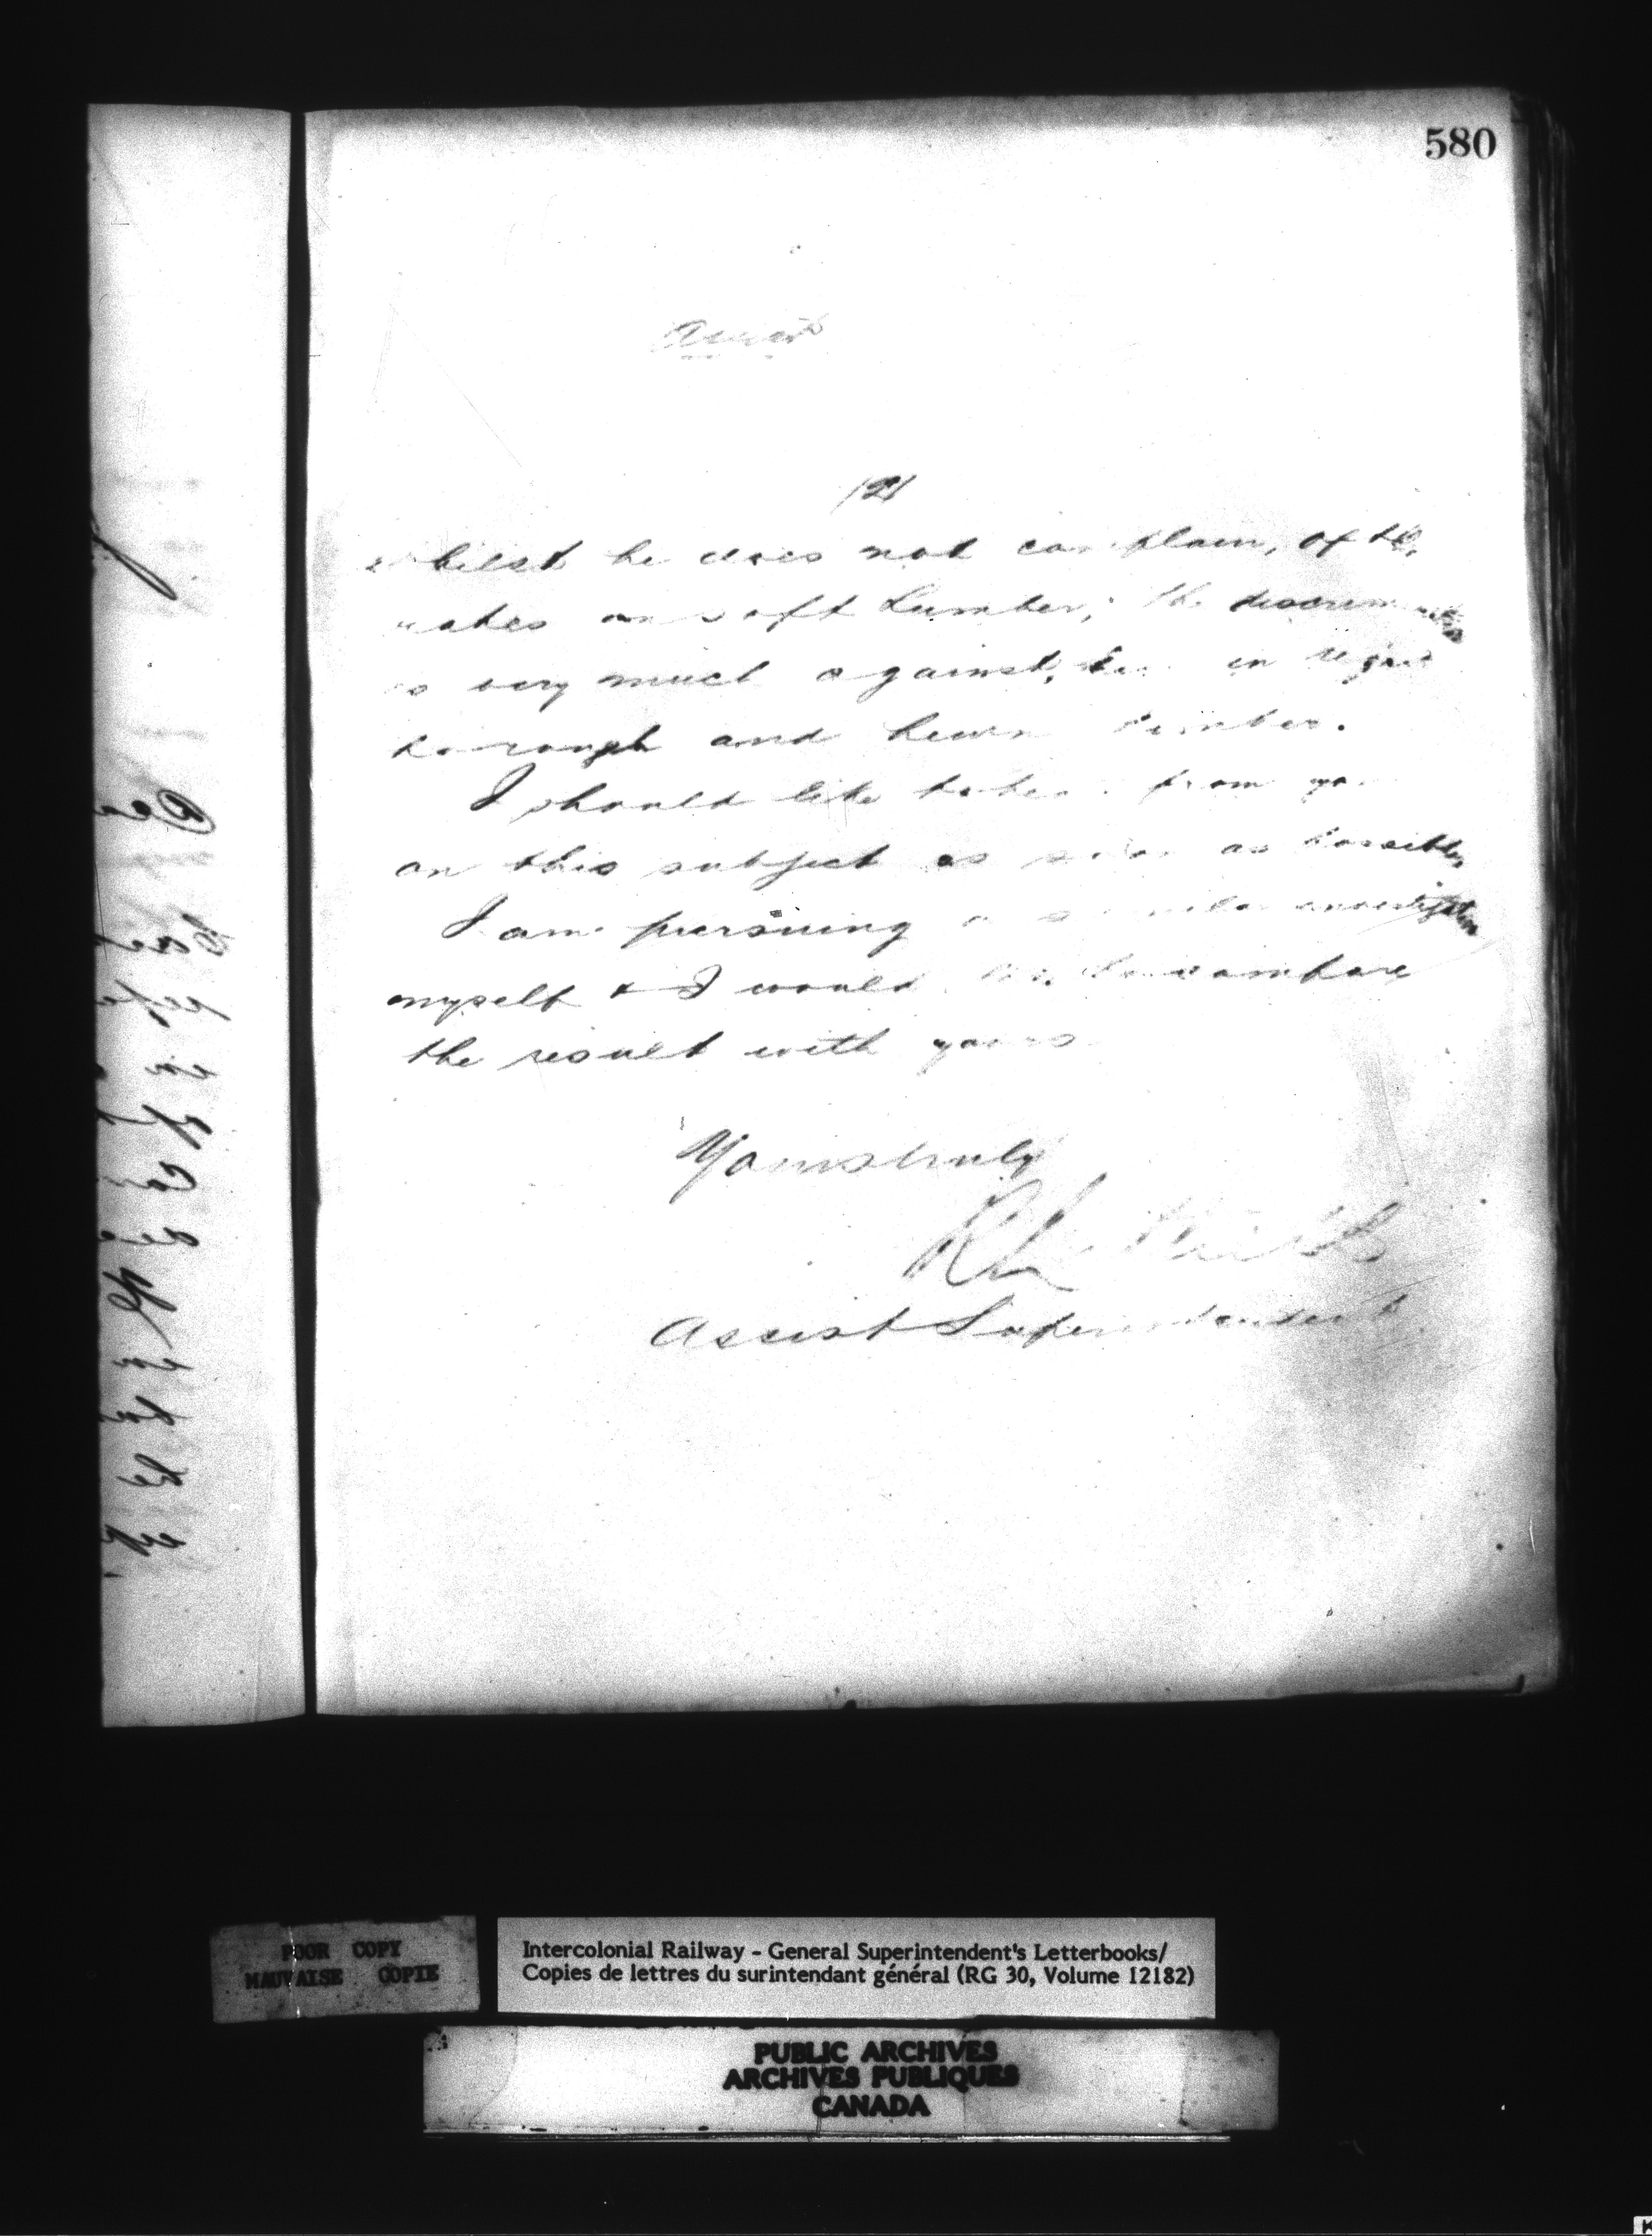 580
(2)
whilst he does not complain, of the
rates on soft Lumber; the discrimination
is very much against, him in regard
to rough and hewn timber.
I should like to hear from you
on this subject as soon as possible,
I am pursuing a similar investigation
myself & I would like to compare
the result with yours
Yours truly
Assist Superintendent
POOR COPY
MAUVAISE COPIE
Intercolonial Railway - General Superintendent's Letterbooks/
Copies de lettres du surintendant général (RG 30, Volume 12182)
PUBLIC ARCHIVES
ARCHIVES PUBLIQUES
CANADA